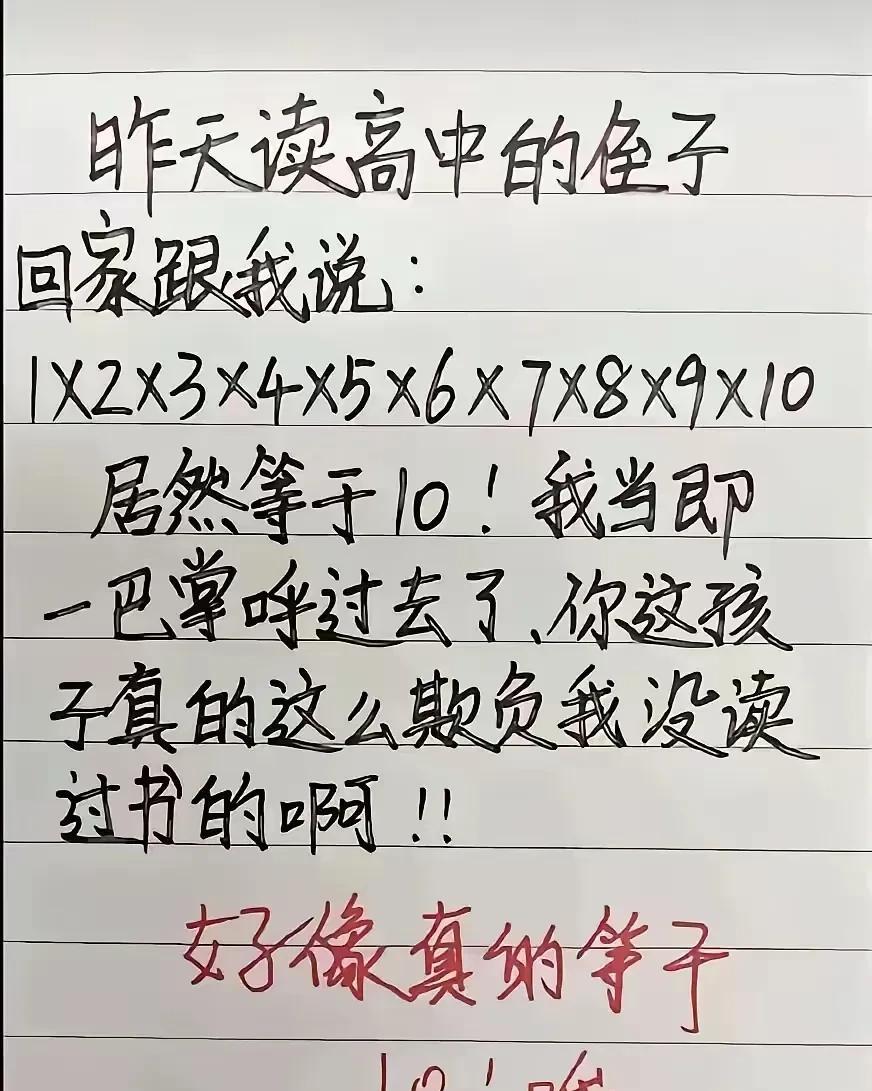 昨天读高中的侄子
回家跟我说：
1×2×3×4×5×6×7×8×9×10
居然等于10！我当即
一巴掌呼过去了、你这孩
子真的这么欺负我没读
过书的啊！！
好像真的等于
10！